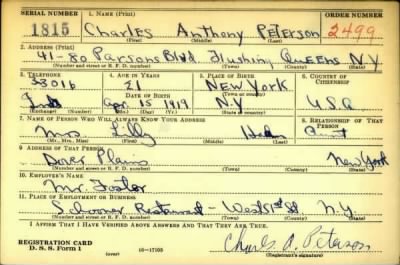 SERIAL NUMBER 1. NAME (Print) ORDER NUMBER
1815 Charles Anthony Peterson 2499
(First) (Middle) (Last)
2. ADDRESS (Print)
41-80 Parsons Blvd. Flushing Queens N.Y.
(Number and street or R. F. D. number) (Town) (County) (State)
3. TELEPHONE 4. AGE IN YEARS 5. PLACE OF BIRTH 6. COUNTRY OF CITIZENSHIP
33016 21 New York
DATE OF BIRTH (Town or county)
Apr. 15 1919 N.Y. U.S.A
(Exchange) (No.) (Mo.) (Day) (Yr.) (State or country)
7. NAME OF PERSON WHO WILL ALWAYS KNOW YOUR ADDRESS 8. RELATIONSHIP OF THAT PERSON
Mrs Lilly Aunt
(Mr., Mrs., Miss) (First) (Middle) (Last)
9. ADDRESS OF THAT PERSON
Dover Plains New York
(Number and street or R. F. D. number) (Town) (County) (State)
10. EMPLOYER'S NAME
Mr. Foster
11. PLACE OF EMPLOYMENT OR BUSINESS
Schooner Restaurant - West St. N.Y.
(Number and street or R. F. D. number) (Town) (County) (State)
I AFFIRM THAT I HAVE VERIFIED ABOVE ANSWERS AND THAT THEY ARE TRUE.
Charles A. Peterson
REGISTRATION CARD
D. S. S. Form 1 (over) 16-17105 (Registrant's signature)